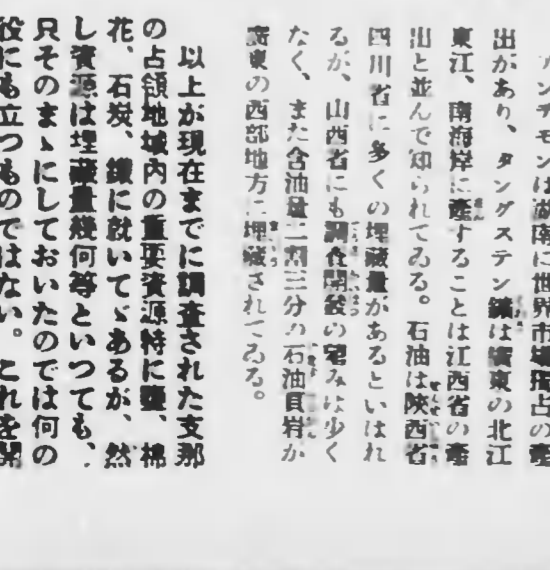 アンチモンは湖南に世界市場獨占の產
出があり、タングステン鑛は廣東の北江
東江、南海岸に產することは江西省の產
出と並んで知られてゐる。石油は陝西省
四川省に多くの埋藏量があるといはれ
るが、山西省にも調査開發の望みは少く
なく、また含油量二割三分の石油頁岩が
廣東の西部地方に埋藏されてゐる。
以上が現在までに調査された支那
の占領地域内の重要資源特に鹽、棉
花、石炭、鐵に就いてゞあるが、然
し資源は埋藏量幾何等といつても、
只そのまゝにしておいたのでは何の
役にも立つものではない。これを開